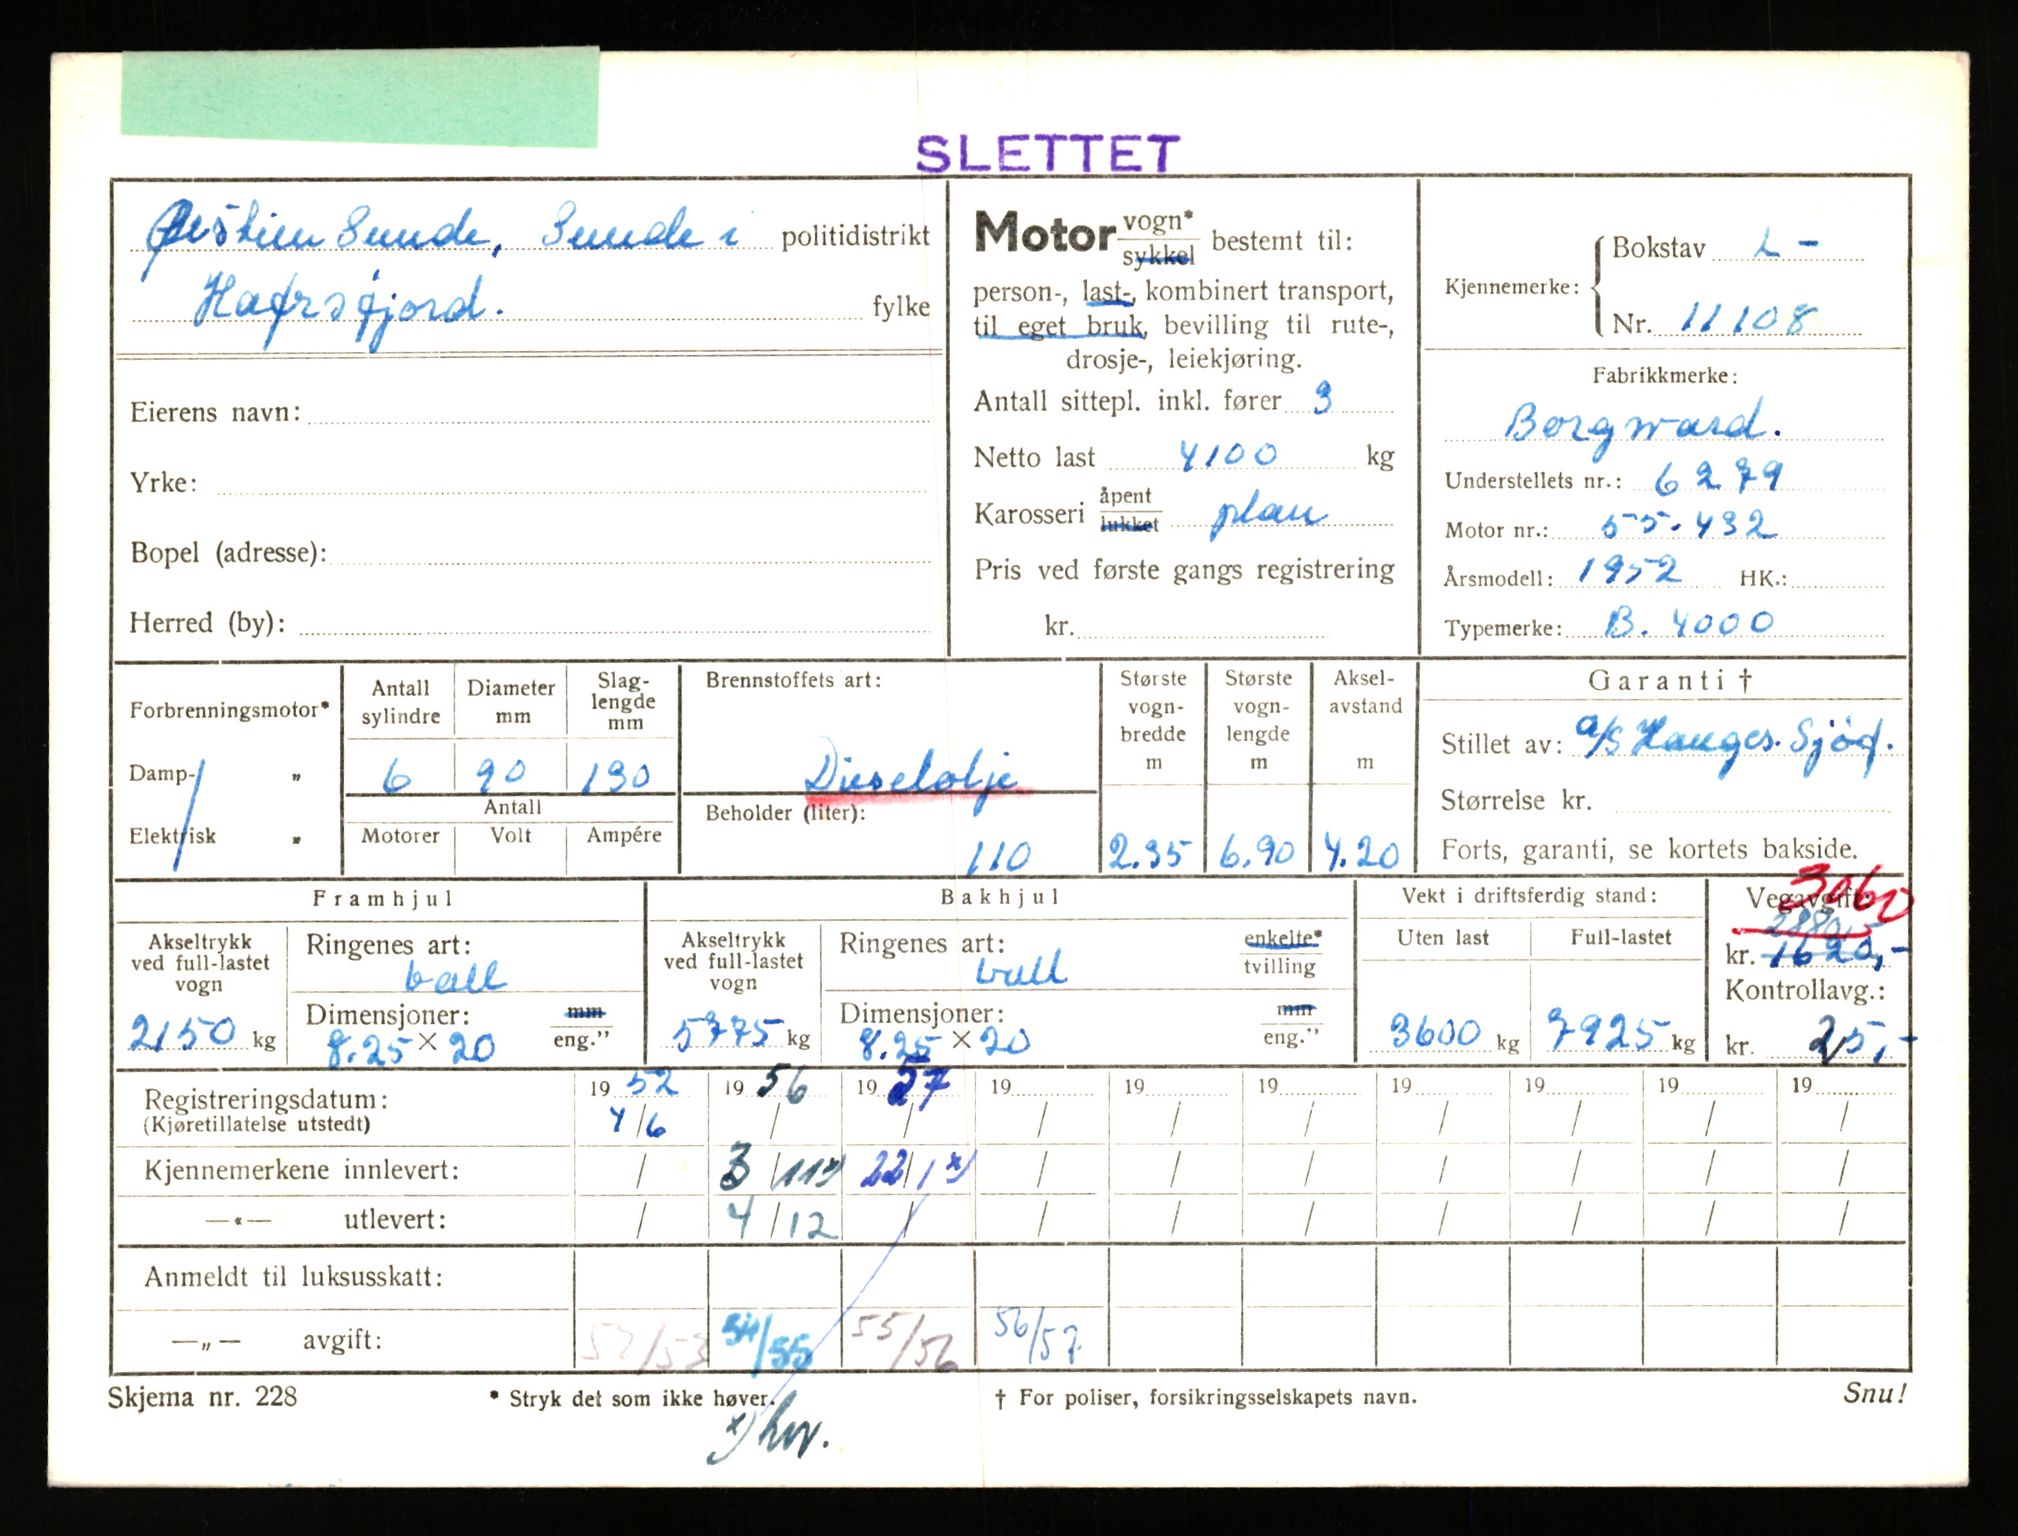 SLETTET
Øistein Sunde, Sunde i politidistrikt
Hafrsfjord. fylke
Eierens navn:
Yrke:
Bopel (adresse):
Herred (by):
Motor vogn* sykkel bestemt til:
person-, last-, kombinert transport,
til eget bruk, bevilling til rute-,
drosje-, leiekjøring.
Antall sittepl. inkl. fører 3
Netto last 4100 kg
Karosseri åpent lukket plan
Pris ved første gangs registrering
kr.
Kjennemerke: Bokstav L -
Nr. 11108
Fabrikkmerke:
Borgward.
Understellets nr.: 6279
Motor nr.: 55.432
Årsmodell: 1952 HK.:
Typemerke: B. 4000
Forbrenningsmotor*
Damp- „
Elektrisk „
Antall sylindre 6
Diameter mm 90
Slag-lengde mm 130
Antall
Motorer Volt Ampére
Brennstoffets art:
Dieselolje
Beholder (liter):
110
Største vogn-bredde m 2.35
Største vogn-lengde m 6.90
Aksel-avstand m 4.20
Garanti †
Stillet av: a/s Hauges. Sjøf.
Størrelse kr.
Forts, garanti, se kortets bakside.
Framhjul
Akseltrykk ved full-lastet vogn
2150 kg
Ringenes art:
ball
Dimensjoner: mm
8.25 × 20 eng.”
Bakhjul
Akseltrykk ved full-lastet vogn
5775 kg
Ringenes art: enkelte*
ball tvilling
Dimensjoner: mm
8.25 × 20 eng.”
Vekt i driftsferdig stand:
Uten last Full-lastet
3600 kg 7925 kg
Vegavgift
3060
2880,-
kr. 1620,-
Kontrollavg.:
kr. 25,-
Registreringsdatum: 19 52 19 56 19 57 19 19 19 19 19 19 19
(Kjøretillatelse utstedt) 4/6 / / / / / / / / /
Kjennemerkene innlevert: / 3/11 x) 22/1 x) / / / / / / /
—«— utlevert: / 4/12 / / / / / / / /
Anmeldt til luksusskatt:
—„— avgift: 52/53 54/55 55/56 56/57.
Skjema nr. 228
* Stryk det som ikke høver.
† For poliser, forsikringsselskapets navn.
Snu!